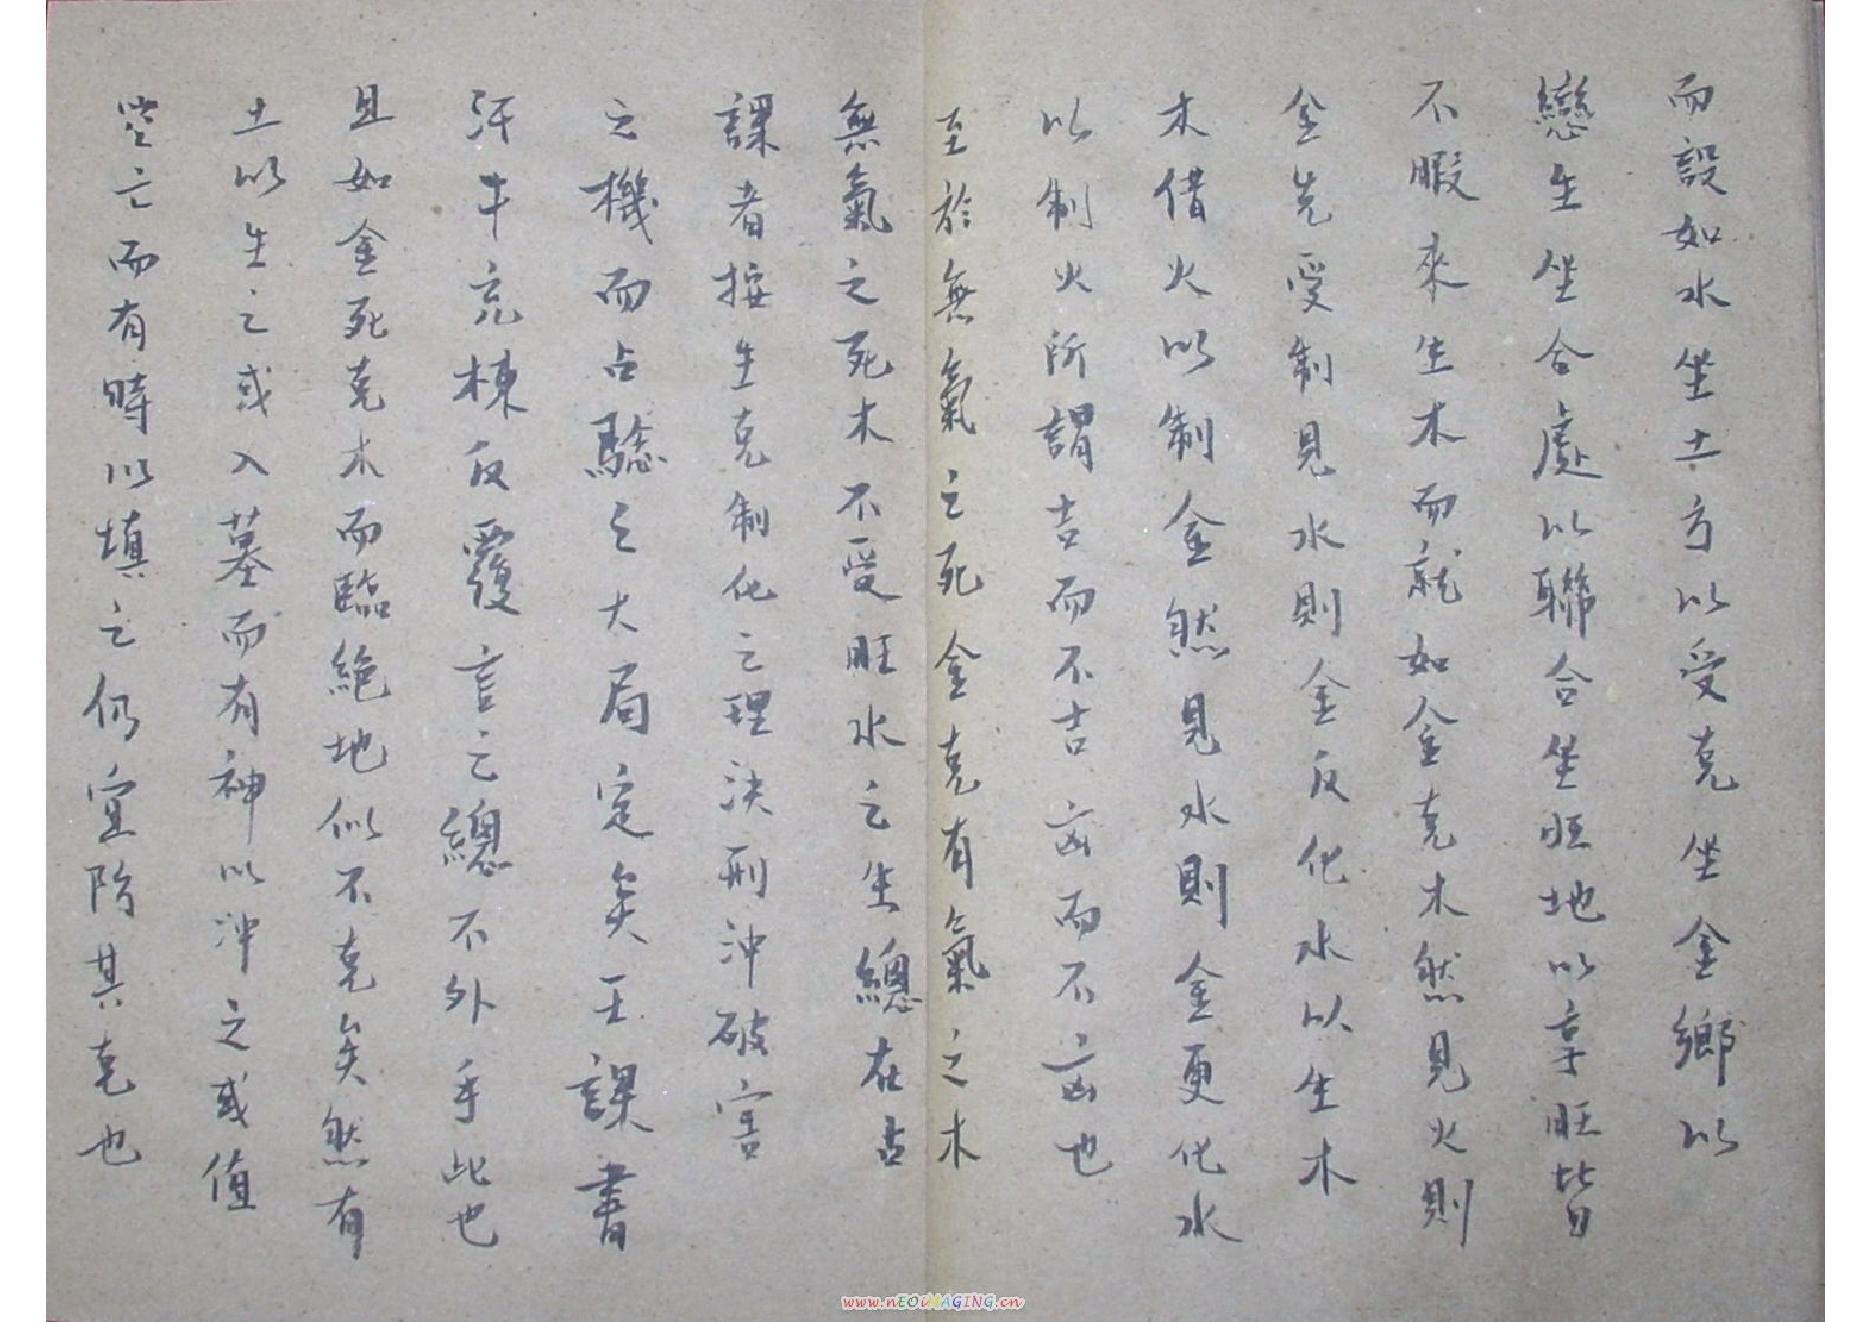 而設如水坐土方以受克坐金鄉以
戀生坐合處以聯合坐旺地以享旺皆
不暇來生木而就如金克木然見火則
金先受制見水則金反化水以生木
木借火以制金然見水則金更化水
以制火所謂吉而不吉凶而不凶也
至於無氣之死金克有氣之木
無氣之死木不受旺水之生總在占
課者按生克制化之理決刑沖破害
之機而占驗之大局定矣壬課書
汗牛充棟反覆言之總不外乎此也
且如金死克木而臨絶地似不克矣然有
土以生之或入墓而有神以冲之或值
空亡而有時以填之仍宜防其克也
www.nEOiMAGING.cn